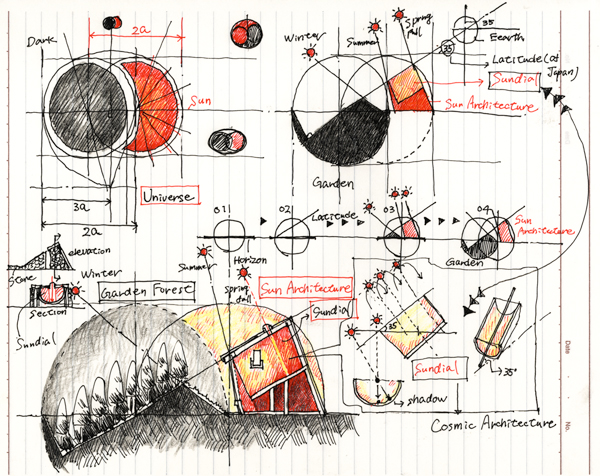 Dark
2a
Sun
Universe
3a
2a
Winter
Summer
Spring
fall
35
Eearth
35
Latitude (at
Japan)
Sundial
Sun Architecture
Garden
01
02
Latitude
Horizon
03
04
Sun
Architecture
Garden
elevation
Stone
section
Sundial
Winter
Garden Forest
Summer
Spring
fall
Sun Architecture
Sundial
35°
Sundial
shadow
35°
Cosmic Architecture
Date
No.